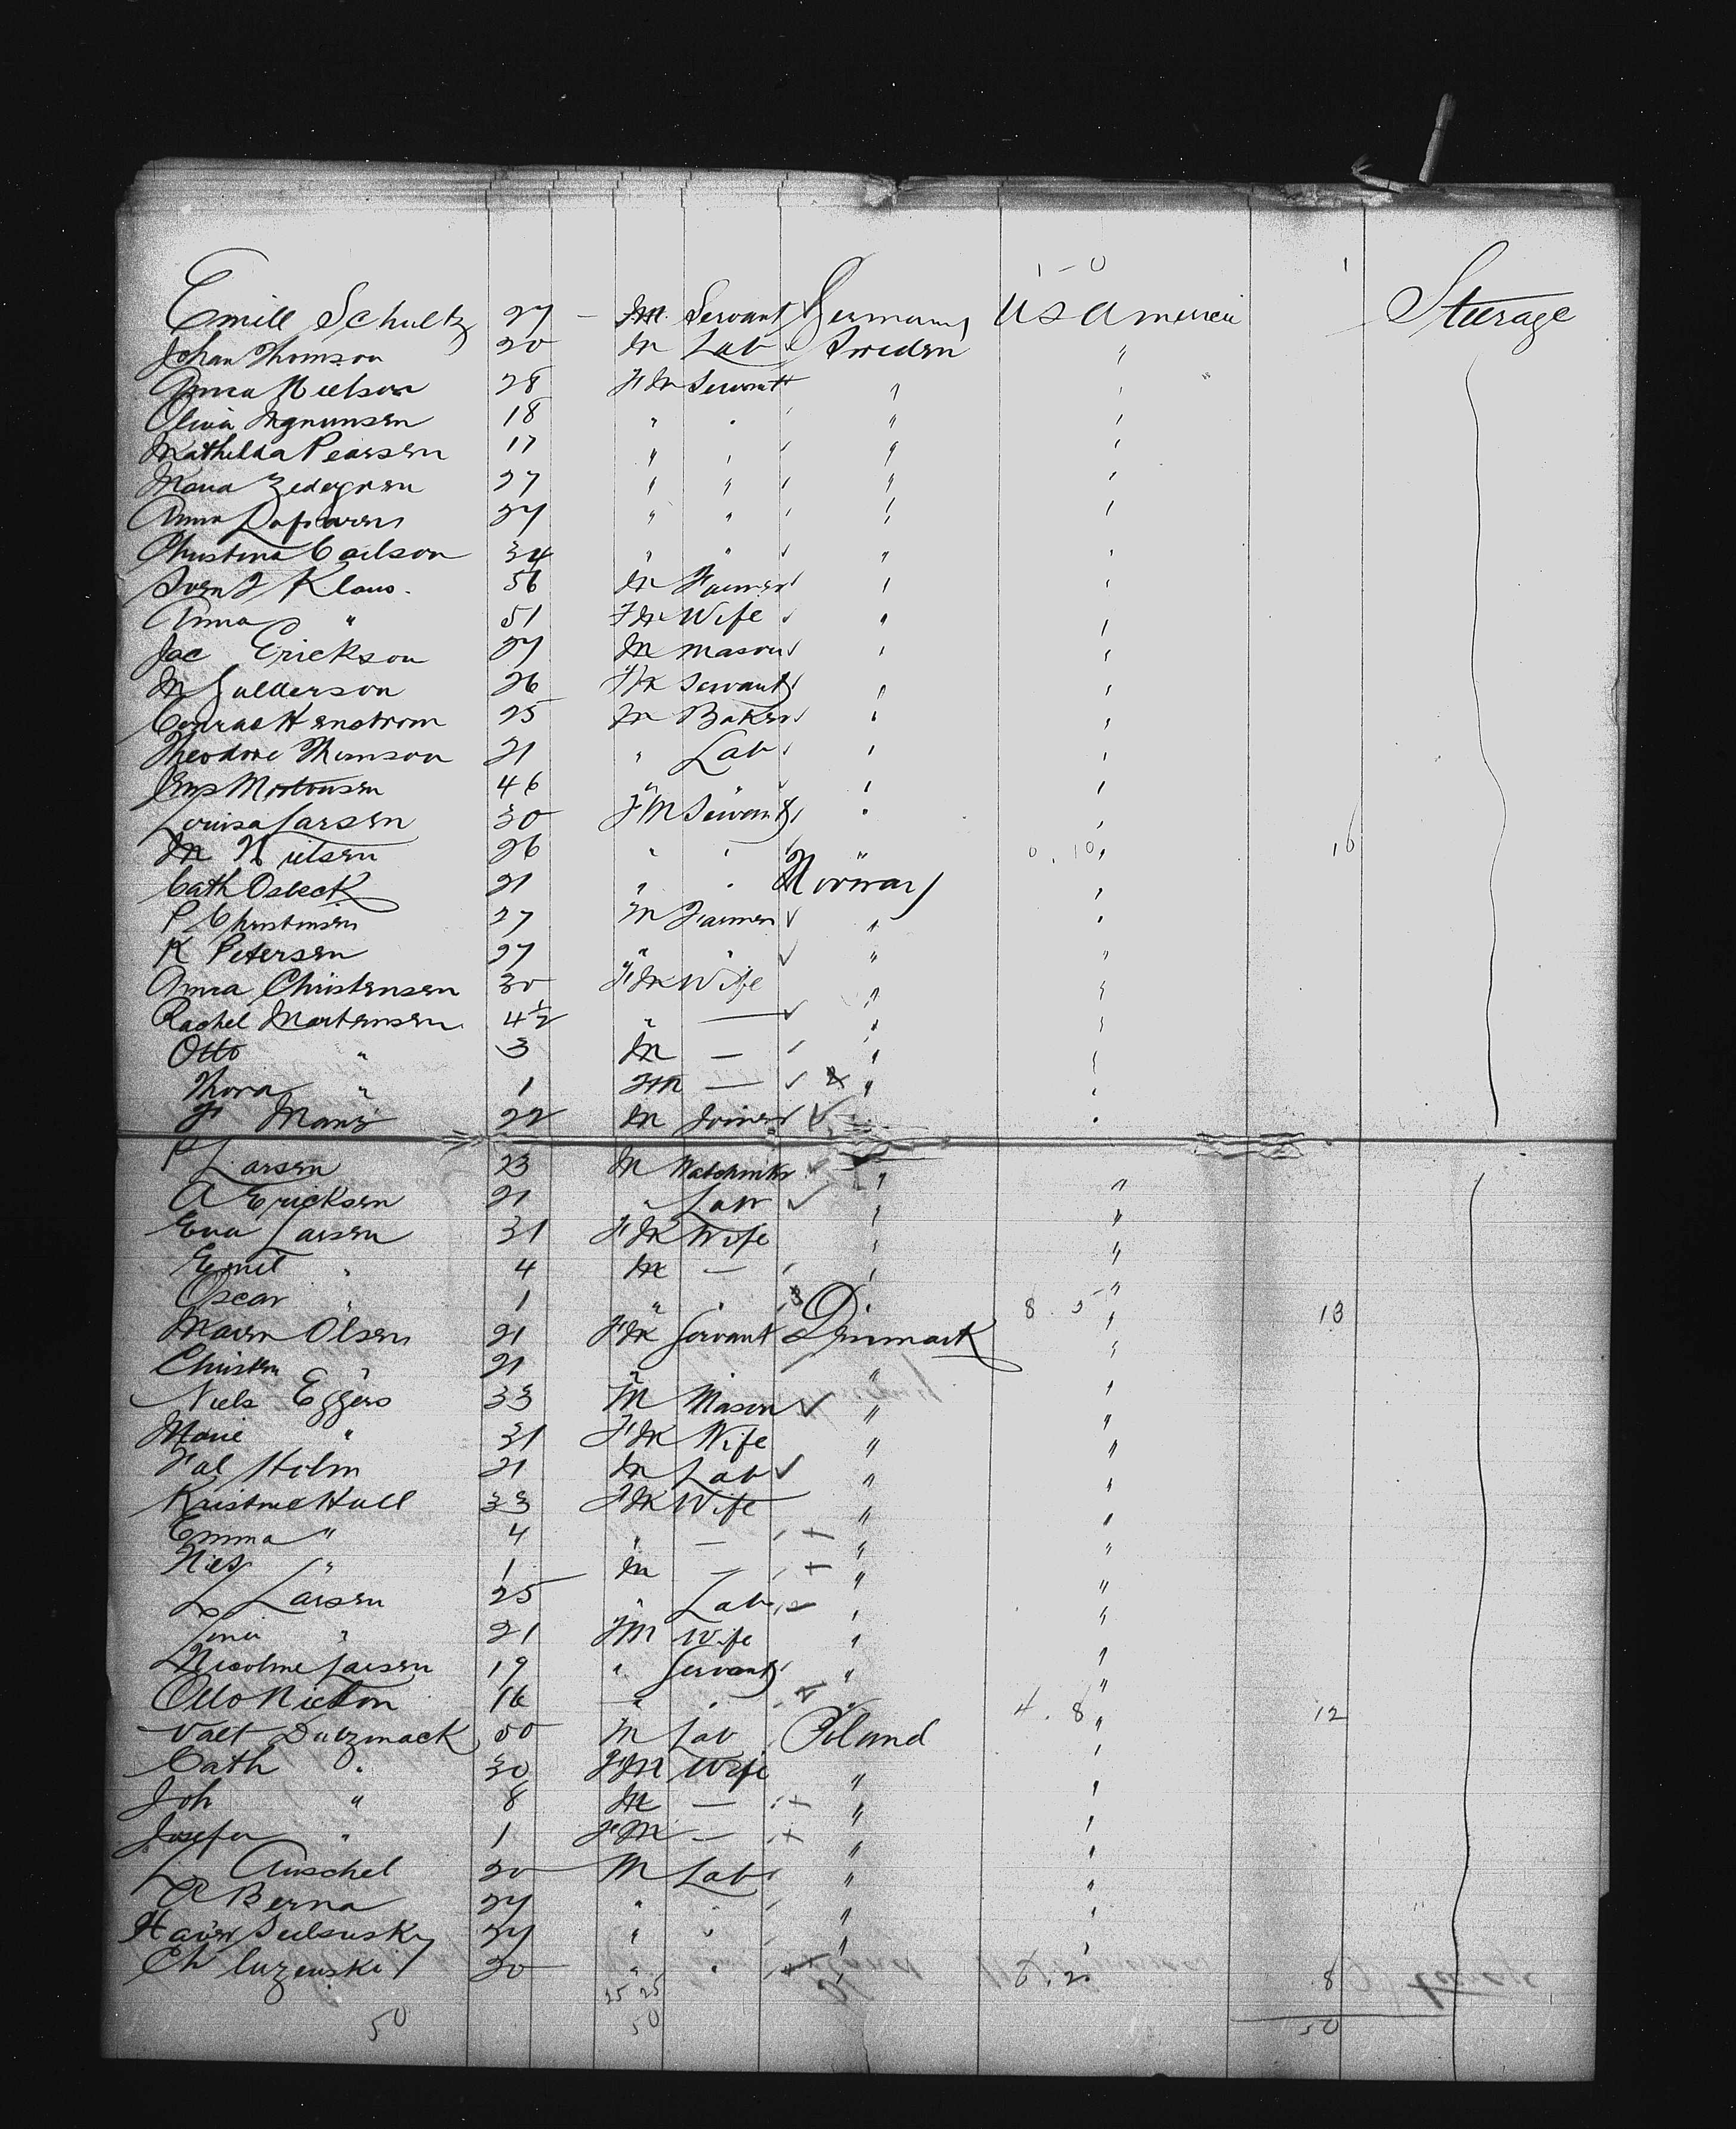 1 - 0 1
Emill Schultz 27 - M. Servant Germany U S America Steerage
Johan Thomson 20 M Lab Sweden "
Anna Nielson 28 FM Servant " "
Olivia Mgnunsen 18 " " " "
Mathilda Pearsen 17 " " " "
Maria Zedegren 27 " " " "
Anna 27 " " " "
Christina Carlson 34 " " " "
Sven J Klaus. 56 M Farmer " "
Anna " 51 FM Wife " "
Jac Erickson 27 M Mason " "
M Gulderson 26 FM Servant " "
Conrad Henstrom 25 M Baker " "
Theodore Thomson 21 " Lab " "
Jens Mortensen 46 " " " "
Louisa Larsen 30 FM Servant " "
M Nielsen 26 " " " 6.10 " 16
Cath Osbeck 21 " " Norway "
P Christensen 27 M Farmer " "
K Petersen 27 " " " "
Anna Christensen 30 FM Wife " "
Rachel Martensen 4 1/2 " — " "
Otto " 3 M — " "
Thora " 1 FM — " "
F Manz 22 M Joiner "
P Larsen 23 M Watchmkr " "
A Ericksen 21 " Lab " "
Eva Larsen 31 FM Wife " "
Emil " 4 M — " "
Oscar " 1 " " " 8.5 " 13
Maren Olsen 21 FM Servant Denmark "
Christen " 21 " " "
Niels Eggers 33 M Mason " "
Marie " 31 FM Wife " "
Fal Holm 21 M Lab " "
Kristine Hull 33 FM Wife " "
Emma " 4 " — " "
Niels " 1 M — " "
L Larsen 25 " Lab " "
Lina " 21 FM Wife " "
Nicoline Larsen 19 " Servant " "
Otto Nielson 16 " " " 4.8 " 12
Valt Dulzmack 50 M Lab Poland "
Cath " 30 FM Wife " "
Joh " 8 M — " "
Josefa " 1 FM — " "
L Auschel 20 M Lab " "
A Berna 24 " " " "
Seelsusky 34 " " " "
Ch Luzenski 30 " " " 6.2 8
25 25
50 50 50